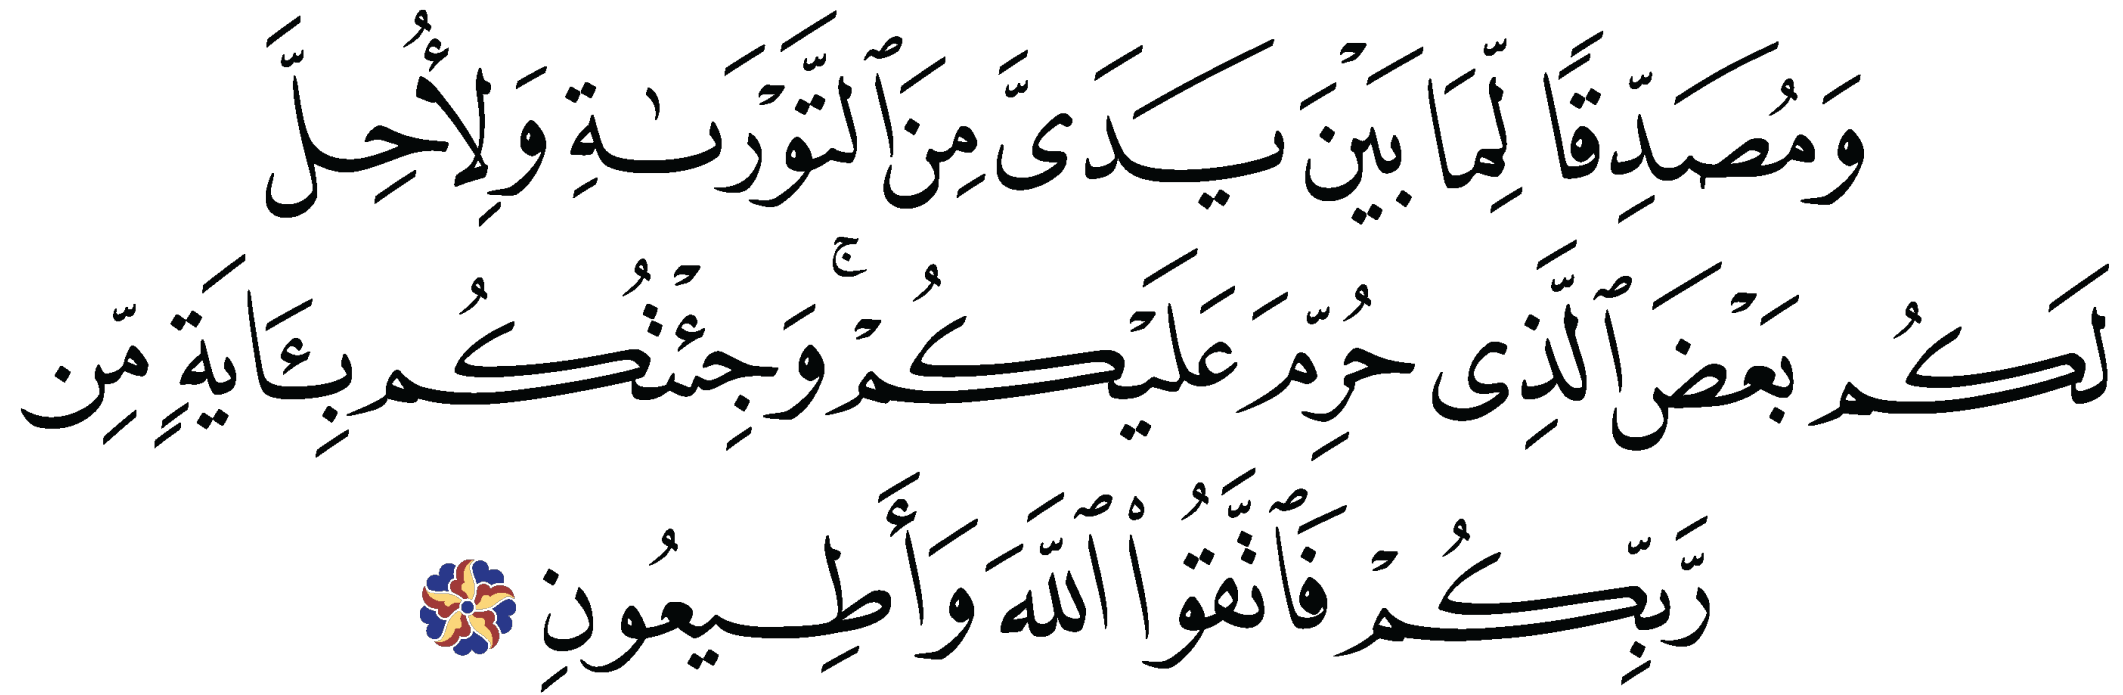 وَمُصَدِّقًا لِّمَا بَيْنَ يَدَىَّ مِنَ ٱلتَّوْرَىٰةِ وَلِأُحِلَّ
لَكُم بَعْضَ ٱلَّذِى حُرِّمَ عَلَيْكُمْ ۚ وَجِئْتُكُم بِـَٔايَةٍ مِّن
رَّبِّكُمْ فَٱتَّقُوا۟ ٱللَّهَ وَأَطِيعُونِ